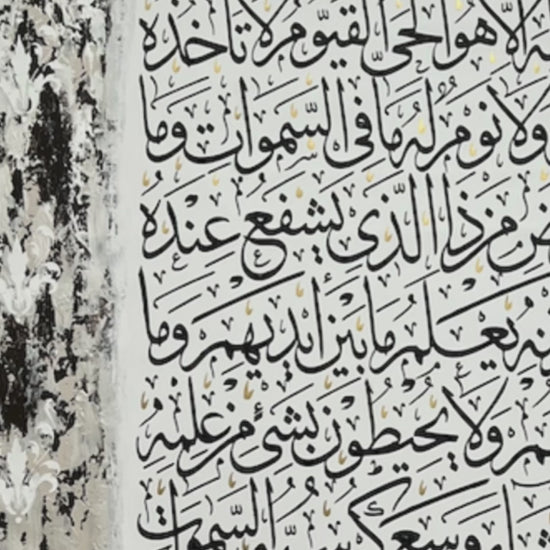 الا هو الحي القيوم لا تاخذه
ولا نوم له ما في السموات وما
من ذا الذي يشفع عنده
يعلم ما بين ايديهم وما
ولا يحيطون بشيء من علمه
وسع كرسيه السموات